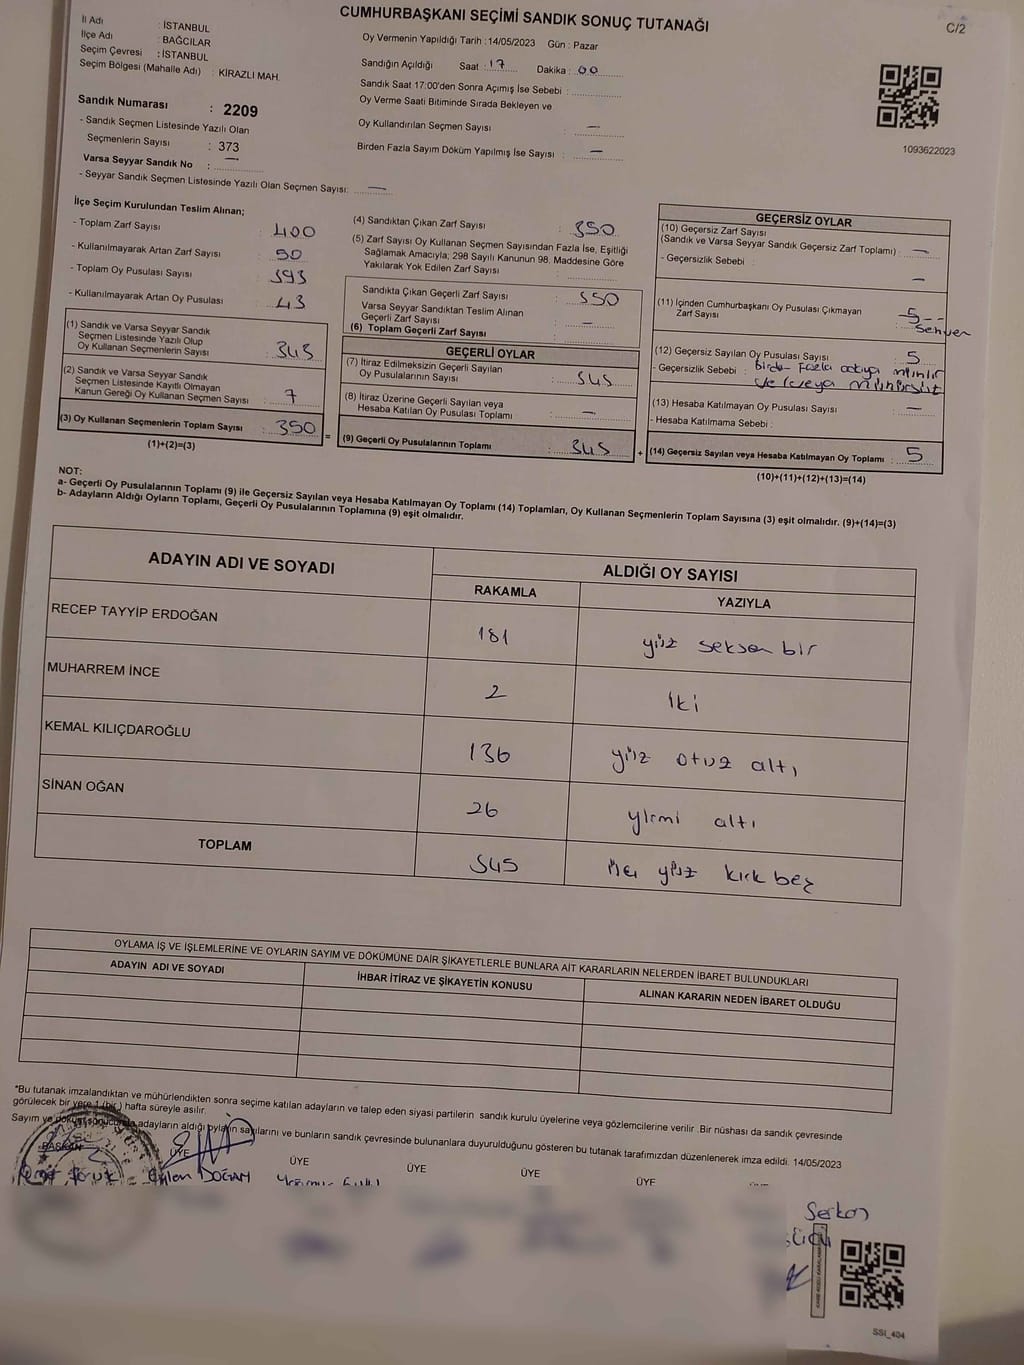 CUMHURBAŞKANI SEÇİMİ SANDIK SONUÇ TUTANAĞI
C/2
İl Adı : İSTANBUL
İlçe Adı : BAĞCILAR
Seçim Çevresi : İSTANBUL
Seçim Bölgesi (Mahalle Adı) : KİRAZLI MAH.
Sandık Numarası : 2209
- Sandık Seçmen Listesinde Yazılı Olan
Seçmenlerin Sayısı : 373
Varsa Seyyar Sandık No : —
- Seyyar Sandık Seçmen Listesinde Yazılı Olan Seçmen Sayısı: —
Oy Vermenin Yapıldığı Tarih : 14/05/2023 Gün : Pazar
Sandığın Açıldığı Saat : 17 Dakika : 00
Sandık Saat 17:00'den Sonra Açımış İse Sebebi :
Oy Verme Saati Bitiminde Sırada Bekleyen ve
Oy Kullandırılan Seçmen Sayısı : —
Birden Fazla Sayım Döküm Yapılmış İse Sayısı : —
1093622023
İlçe Seçim Kurulundan Teslim Alınan;
- Toplam Zarf Sayısı : 400
- Kullanılmayarak Artan Zarf Sayısı : 50
- Toplam Oy Pusulası Sayısı : 393
- Kullanılmayarak Artan Oy Pusulası : 43
(1) Sandık ve Varsa Seyyar Sandık
Seçmen Listesinde Yazılı Olup
Oy Kullanan Seçmenlerin Sayısı : 343
(2) Sandık ve Varsa Seyyar Sandık
Seçmen Listesinde Kayıtlı Olmayan
Kanun Gereği Oy Kullanan Seçmen Sayısı : 7
(3) Oy Kullanan Seçmenlerin Toplam Sayısı : 350
(1)+(2)=(3)
(4) Sandıktan Çıkan Zarf Sayısı : 350
(5) Zarf Sayısı Oy Kullanan Seçmen Sayısından Fazla İse, Eşitliği
Sağlamak Amacıyla; 298 Sayılı Kanunun 98. Maddesine Göre
Yakılarak Yok Edilen Zarf Sayısı :
Sandıkta Çıkan Geçerli Zarf Sayısı : 350
Varsa Seyyar Sandıktan Teslim Alınan
Geçerli Zarf Sayısı : —
(6) Toplam Geçerli Zarf Sayısı
GEÇERLİ OYLAR
(7) İtiraz Edilmeksizin Geçerli Sayılan
Oy Pusulalarının Sayısı : 345
(8) İtiraz Üzerine Geçerli Sayılan veya
Hesaba Katılan Oy Pusulası Toplamı : —
=
(9) Geçerli Oy Pusulalarının Toplamı : 345
GEÇERSİZ OYLAR
(10) Geçersiz Zarf Sayısı
(Sandık ve Varsa Seyyar Sandık Geçersiz Zarf Toplamı) : —
- Geçersizlik Sebebi : —
(11) İçinden Cumhurbaşkanı Oy Pusulası Çıkmayan
Zarf Sayısı : 5 --
Sehven
(12) Geçersiz Sayılan Oy Pusulası Sayısı : 5
- Geçersizlik Sebebi : birden fazla adaya mühür
ve/veya mühürsüz
(13) Hesaba Katılmayan Oy Pusulası Sayısı : —
- Hesaba Katılmama Sebebi :
+ (14) Geçersiz Sayılan veya Hesaba Katılmayan Oy Toplamı : 5
(10)+(11)+(12)+(13)=(14)
NOT:
a- Geçerli Oy Pusulalarının Toplamı (9) ile Geçersiz Sayılan veya Hesaba Katılmayan Oy Toplamı (14) Toplamları, Oy Kullanan Seçmenlerin Toplam Sayısına (3) eşit olmalıdır. (9)+(14)=(3)
b- Adayların Aldığı Oyların Toplamı, Geçerli Oy Pusulalarının Toplamına (9) eşit olmalıdır.
ADAYIN ADI VE SOYADI
ALDIĞI OY SAYISI
RAKAMLA YAZIYLA
RECEP TAYYİP ERDOĞAN 181 yüz seksen bir
MUHARREM İNCE 2 iki
KEMAL KILIÇDAROĞLU 136 yüz otuz altı
SİNAN OĞAN 26 yirmi altı
TOPLAM 345 üç yüz kırk beş
OYLAMA İŞ VE İŞLEMLERİNE VE OYLARIN SAYIM VE DÖKÜMÜNE DAİR ŞİKAYETLERLE BUNLARA AİT KARARLARIN NELERDEN İBARET BULUNDUKLARI
ADAYIN ADI VE SOYADI
İHBAR İTİRAZ VE ŞİKAYETİN KONUSU
ALINAN KARARIN NEDEN İBARET OLDUĞU
*Bu tutanak imzalandıktan ve mühürlendikten sonra seçime katılan adayların ve talep eden siyasi partilerin sandık kurulu üyelerine veya gözlemcilerine verilir .Bir nüshası da sandık çevresinde
görülecek bir yere 1 (bir) hafta süreyle asılır.
Sayım ve döküm sonucunda adayların aldığı oyların sayılarını ve bunların sandık çevresinde bulunanlara duyurulduğunu gösteren bu tutanak tarafımızdan düzenlenerek imza edildi. 14/05/2023
BAŞKAN ÜYE ÜYE ÜYE ÜYE ÜYE
Eylem DOĞAN
Serkan
SSI_404